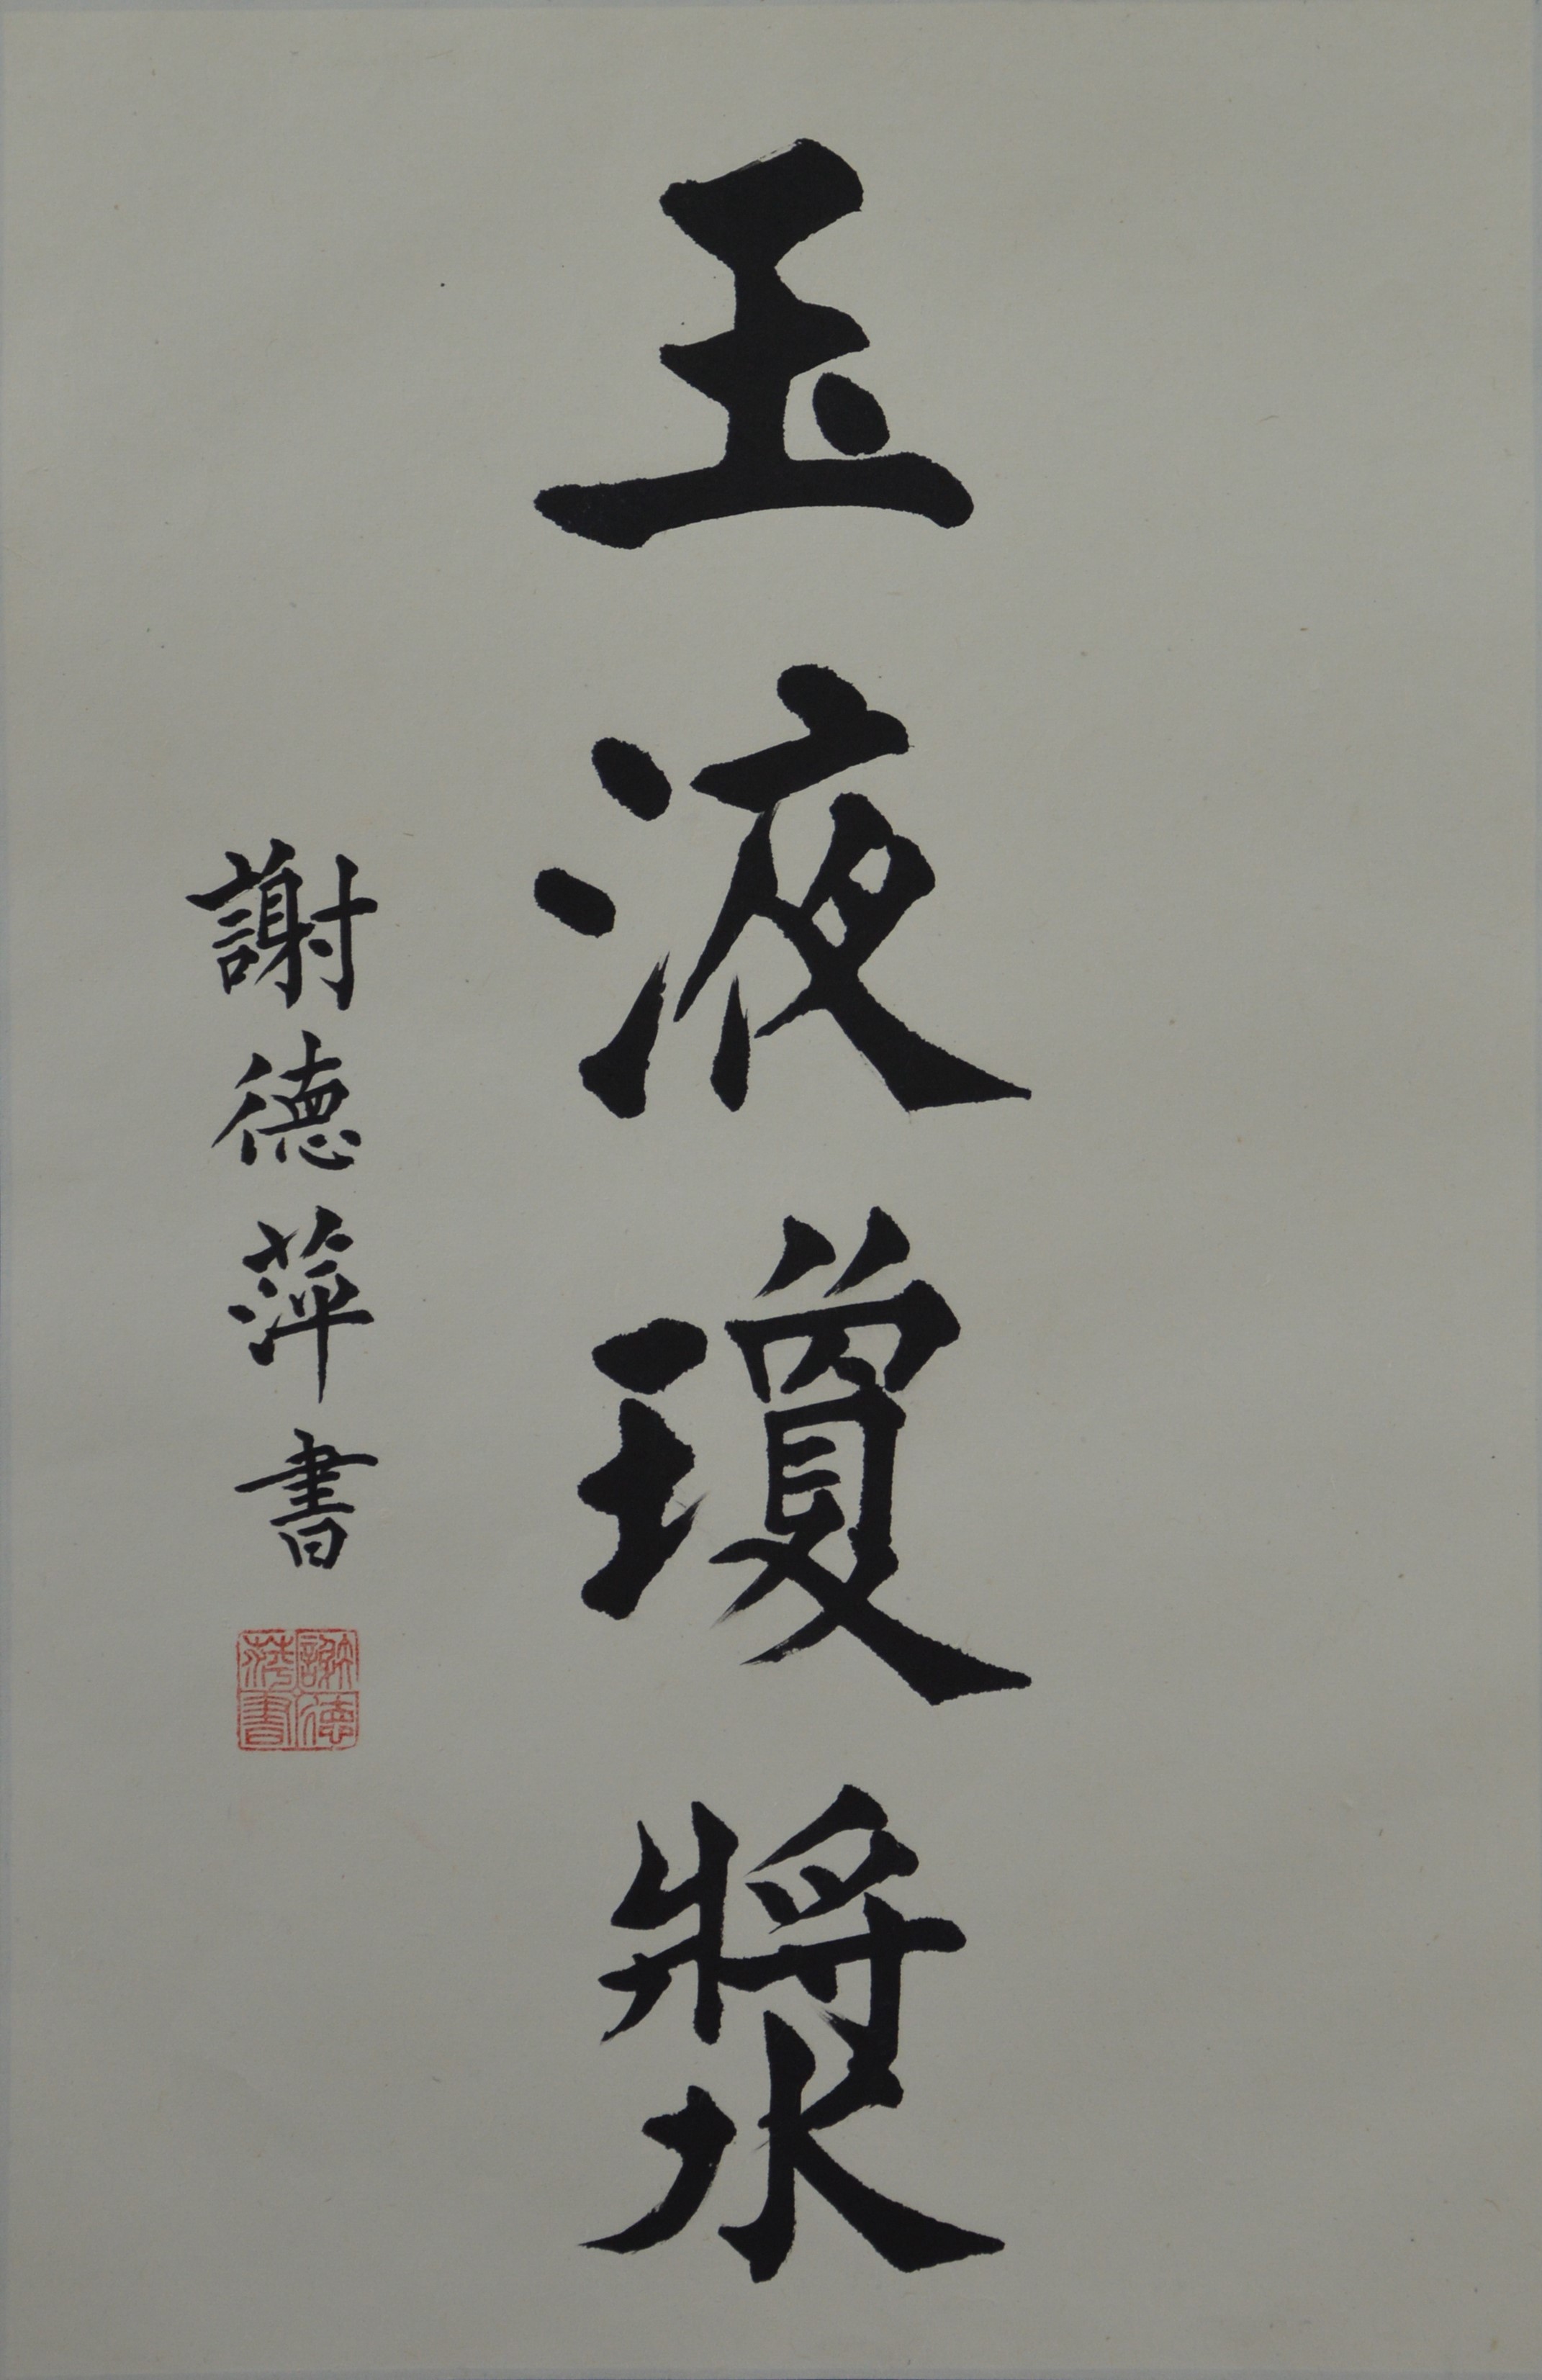 玉液瓊漿
謝德萍書
謝德萍書